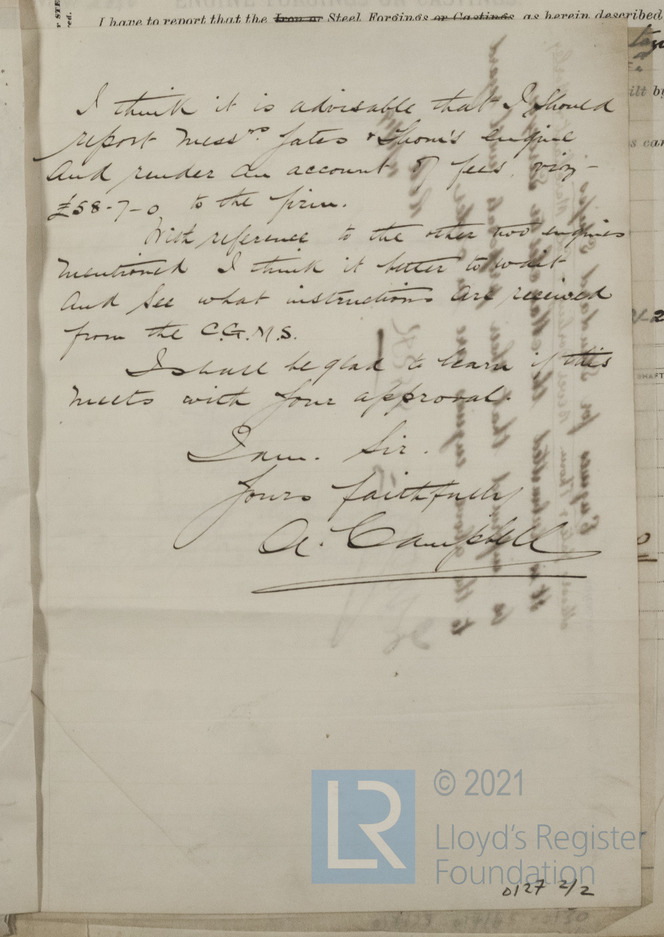 I have to report that the Iron or Steel Forgings or Castings as herein described
I think it is advisable that I should
report Messrs Yates & Thom's engine
and render an account of fees, viz-
£58-7-0 to the firm.
With reference to the other two engines
mentioned I think it better to wait
and see what instructions are received
from the C.G.M.S.
I shall be glad to learn if this
meets with your approval.
I am. Sir.
Yours faithfully
A. Campbell
LR
© 2021
Lloyd's Register
Foundation
0127 2/2